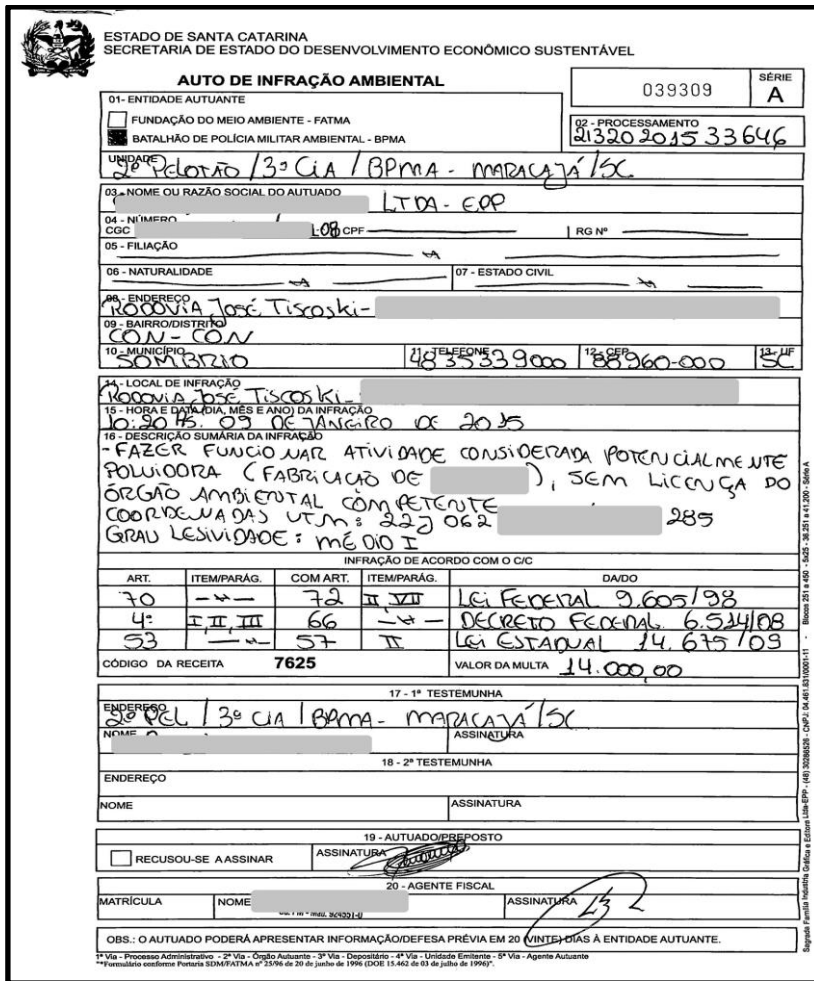 ESTADO DE SANTA CATARINA
SECRETARIA DE ESTADO DO DESENVOLVIMENTO ECONÔMICO SUSTENTÁVEL
AUTO DE INFRAÇÃO AMBIENTAL
039309
SÉRIE
A
01- ENTIDADE AUTUANTE
FUNDAÇÃO DO MEIO AMBIENTE - FATMA
BATALHÃO DE POLÍCIA MILITAR AMBIENTAL - BPMA
02 - PROCESSAMENTO
21320201533646
UNIDADE
2º PELOTÃO / 3ª CIA / BPMA - MARACAJÁ/SC
03- NOME OU RAZÃO SOCIAL DO AUTUADO
LTDA - EPP
04 - NÚMERO
CGC -08 CPF RG Nº
05 - FILIAÇÃO
06 - NATURALIDADE 07 - ESTADO CIVIL
08- ENDEREÇO
RODOVIA José Tiscoski-
09 - BAIRRO/DISTRITO
CON-CON
10 - MUNICÍPIO 11 - TELEFONE 12 - CEP 13- UF
SOMBRIO 4835339000 88960-000 SC
14 - LOCAL DE INFRAÇÃO
Rodovia José Tiscoski-
15 - HORA E DATA (DIA, MÊS E ANO) DA INFRAÇÃO
10:20 HS. 09 DE JANEIRO DE 2015
16 - DESCRIÇÃO SUMÁRIA DA INFRAÇÃO
- FAZER FUNCIONAR ATIVIDADE CONSIDERADA POTENCIALMENTE
POLUIDORA (FABRICAÇÃO DE ), SEM LICENÇA DO
ÓRGÃO AMBIENTAL COMPETENTE
COORDENADAS UTM: 22J 062 285
GRAU LESIVIDADE: MÉDIO I
INFRAÇÃO DE ACORDO COM O C/C
ART. ITEM/PARÁG. COM ART. ITEM/PARÁG. DA/DO
70 72 II, VII LEI FEDERAL 9.605/98
4º I, II, III 66 DECRETO FEDERAL 6.514/08
53 57 II LEI ESTADUAL 14.675/09
CÓDIGO DA RECEITA 7625 VALOR DA MULTA 14.000,00
17 - 1ª TESTEMUNHA
ENDEREÇO
2º PEL / 3ª CIA / BPMA - MARACAJÁ/SC
NOME ASSINATURA
18 - 2ª TESTEMUNHA
ENDEREÇO
NOME ASSINATURA
19 - AUTUADO/PREPOSTO
RECUSOU-SE A ASSINAR ASSINATURA
20 - AGENTE FISCAL
MATRÍCULA NOME ASSINATURA
OBS.: O AUTUADO PODERÁ APRESENTAR INFORMAÇÃO/DEFESA PRÉVIA EM 20 (VINTE) DIAS À ENTIDADE AUTUANTE.
1ª Via - Processo Administrativo - 2ª Via - Órgão Autuante - 3ª Via - Depositário - 4ª Via - Unidade Emitente - 5ª Via - Agente Autuante
"*Formulário conforme Portaria SDM/FATMA nº 25/96 de 20 de junho de 1996 (DOE 15.462 de 03 de julho de 1996)".
Sagrada Família Indústria Gráfica e Editora Ltda-EPP - (48) 30286526 - CNPJ: 04.461.831/0001-11 - Blocos 251 a 450 - 5x25 - 36.251 a 41.200 - Série A